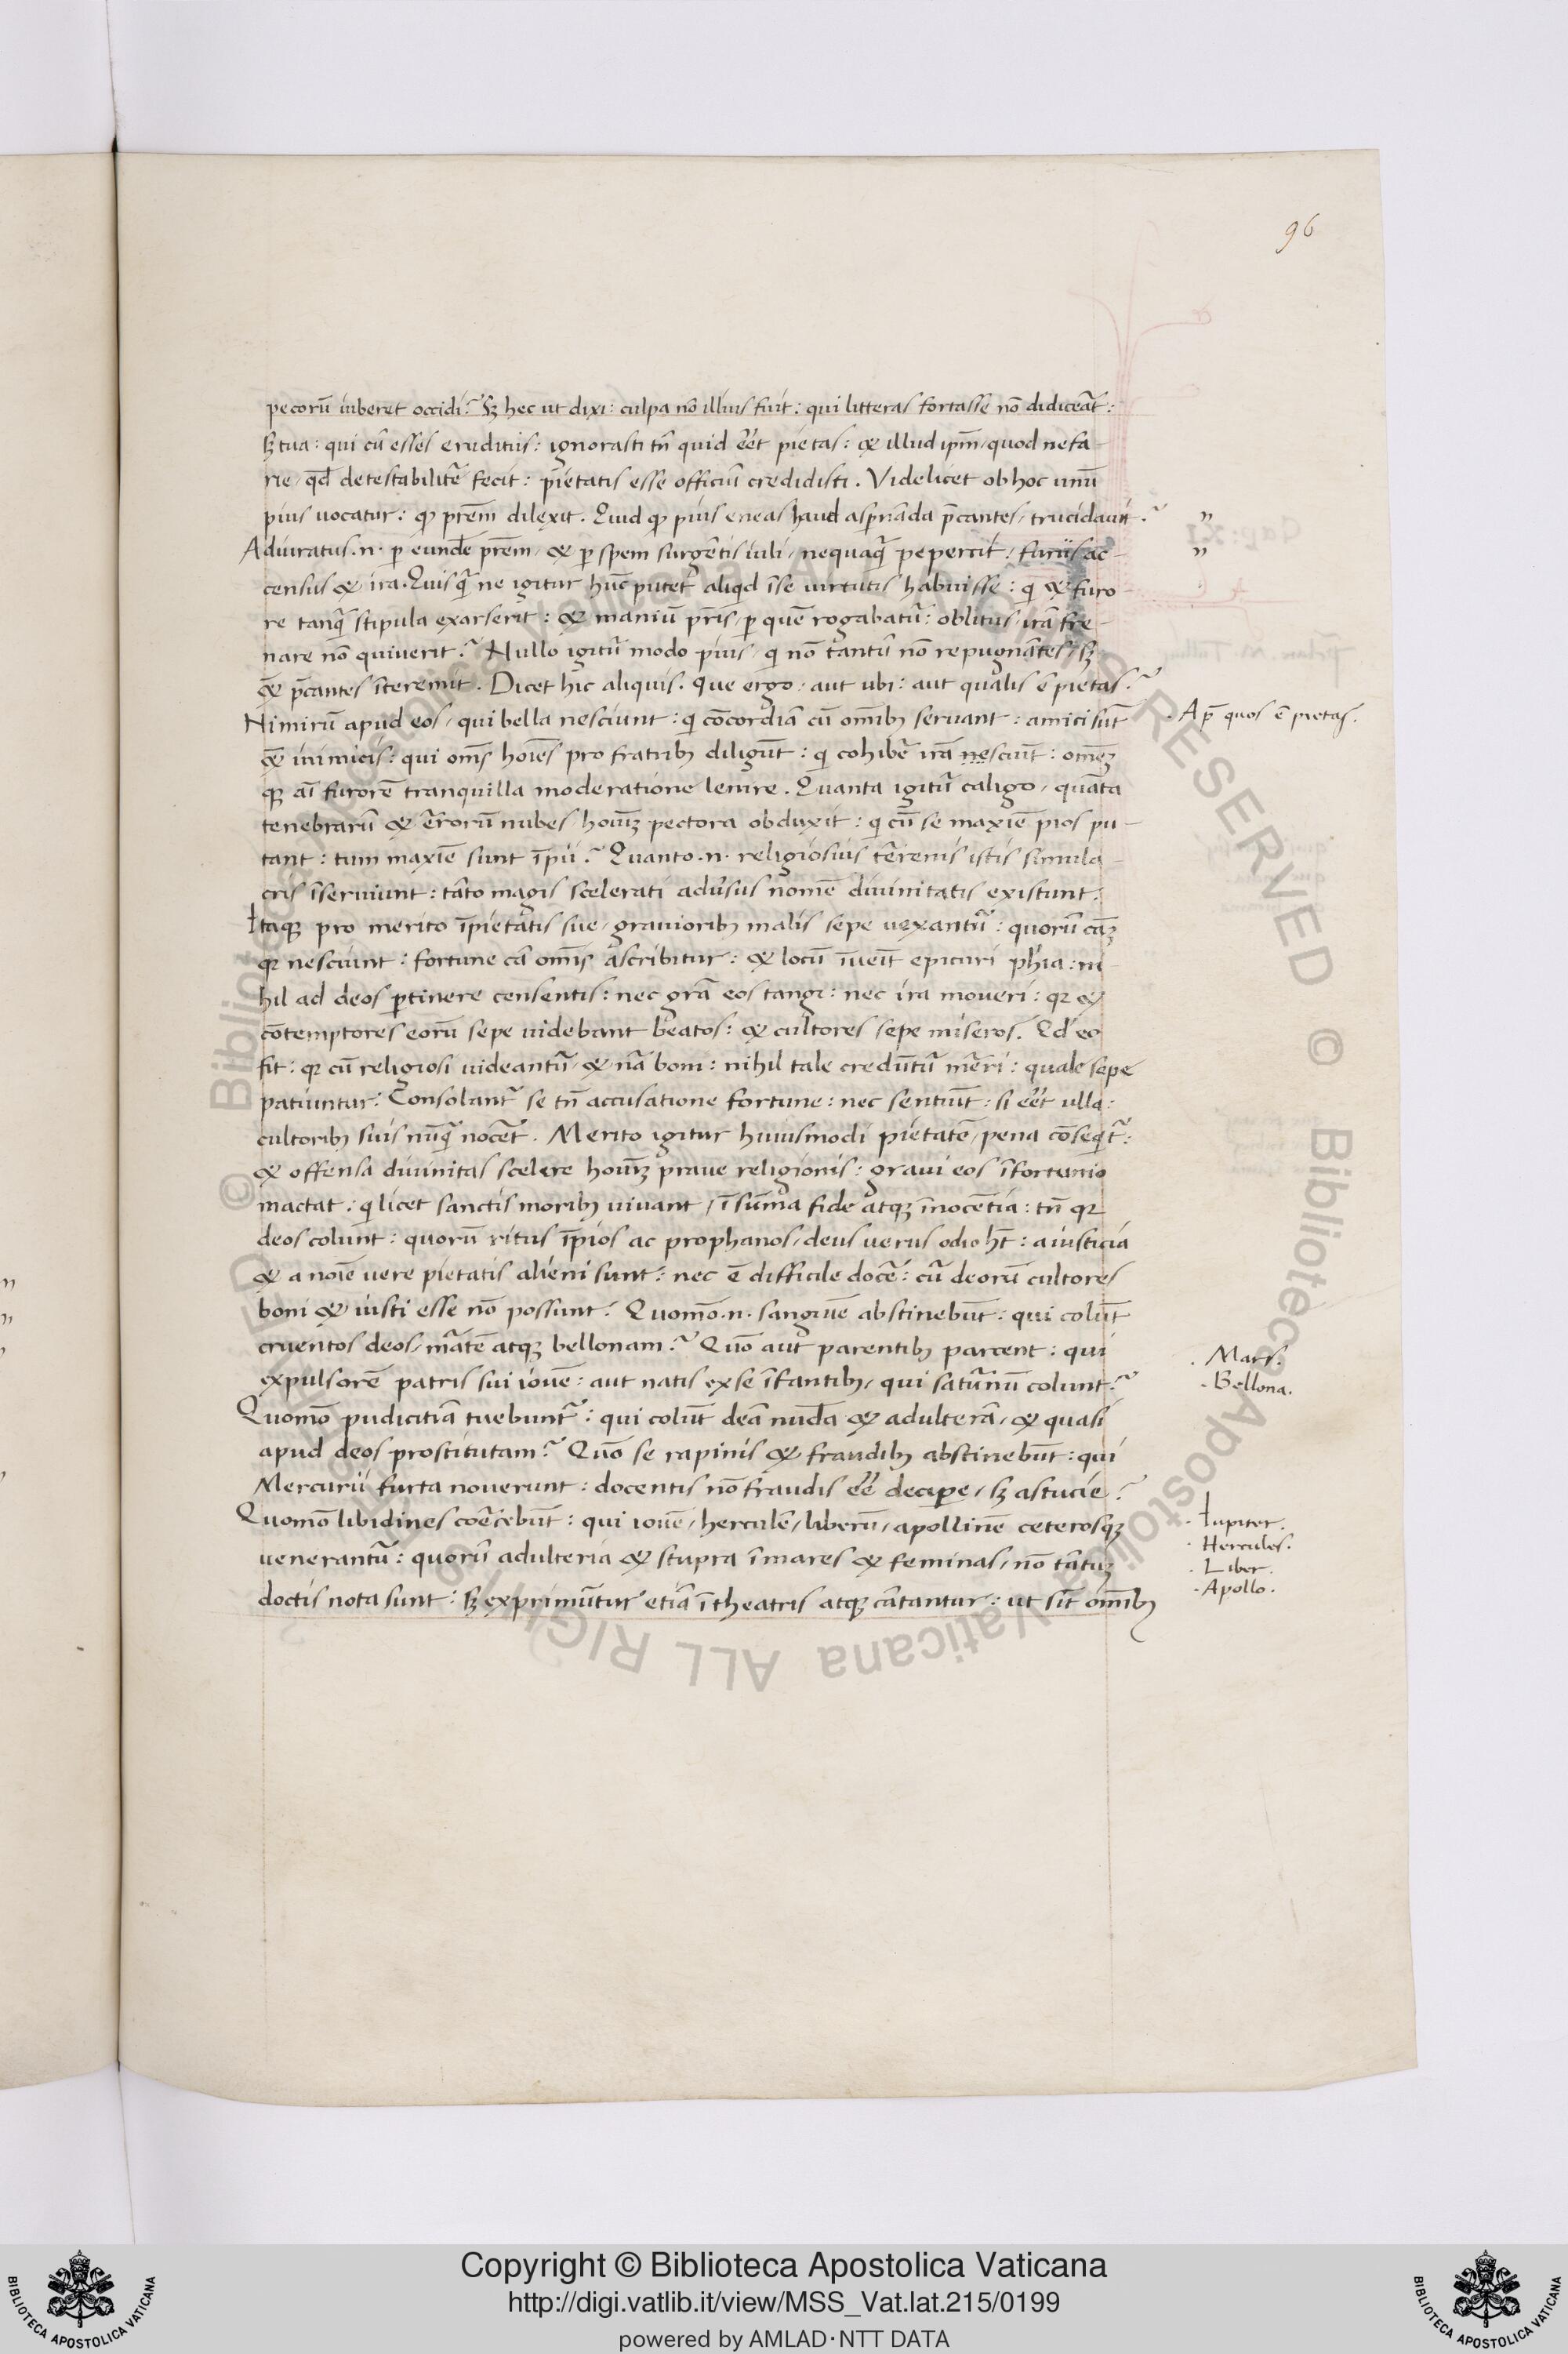 96
pecorū iuberet occidi? Sʒ hec ut dixi: culpa nō illius fuit: qui litteras fortasse nō didicēat:
Sʒ tua: qui cū esses eruditus: ignorasti tn̄ quid eēt pietas: & illud ipm̄, quod nefa-
rie, qd̄ detestabilit̄ fecit: pietatis esse officiū credidisti. Videlicet ob hoc unū
pius uocatur: qꝫ prēm dilexit. Quid qꝫ pius eneas haud asp̄nāda p̄cantes, trucidauit? ”
Adiuratus .n. ꝑ eundē prēm, & ꝑ spem surgētis iuli, nequaq̄ pepercit, furiis ac- ”
census & ira. Quisq̄ ne igitur hūc putet aliqd īse uirtutis habuisse: qi & furo-
re tanq̄ stipula exarserit: & maniū pr̄is, ꝑ quē rogabatū: oblitus, irā fre-
nare nō quiuerit? Nullo igitū modo pius, qi nō tantū nō repugnātes, sʒ
& p̄cantes īteremit. Dicet hic aliquis. Que ergo, aut ubi: aut qualis ē pietas?
Nimirū apud eos, qui bella nesciunt: qi cōcordiā cū omībꝫ seruant: amici sūt
. Ap̄ quos ē pietas.
& inimicis: qui om̄s hoīes pro fratribꝫ diligūt: qi cohibē irā nesciūt: omēꝫ
qꝫ aī furorē tranquilla moderatione lenire. Quanta igitū caligo, quāta
tenebrarū & ērrorū nubes, hoiūꝫ pectora obduxit: qi cū se maxīe pios pu-
tant: tum maxīe sunt īpii? Quanto .n. religiosius tērenis istis simula-
cris īseruiunt: tāto magis scelerati aduīsus nomē diuinitatis existunt:
Itaqꝫ pro merito īpietatis sue, grauioribꝫ malis sepe uexantū: quorū cāꝫ
qꝛ nesciunt: fortune cā omīs ascribitur: & locū īueīt epicuri phīa: ni-
hil ad deos ꝑtinere censentis: nec grā eos tangi: nec ira moueri: qꝛ &
cōtemptores eorū sepe uidebant beatos: & cultores sepe miseros. Qd' eo
fit: qꝛ cū religiosi uideantū, & nā boni: nihil tale credūtū mēri: quale sepe
patiuntur: Consolant̄ se tn̄ accusatione fortune: nec sentiūt: si eēt ulla:
cultoribꝫ suis nūq̄ nocēt. Merito igitur huiusmodi pietatē, pena cōseqit̄:
& offensa diuinitas scelere hoiūꝫ praue religionis: graui eos īfortunio
mactat: qi licet sanctis moribꝫ uiuant, ī sūma fide atqꝫ īnocētia: tn̄ qꝛ
deos colunt: quorū ritus īpios ac prophanos, deus uerus odio ht̄: a iusticia
& a noīe uere pietatis alieni sunt: nec ē difficile docē: cū deorū cultores
boni & iusti esse nō possunt? Quomō .n. sanguīe abstinebūt: qui colūt
cruentos deos, mātē atqꝫ bellonam? Quō aut parentibꝫ parcent: qui
. Mars.
expulsorē patris sui iouē: aut natis ex se īfantibꝫ, qui satūnū colunt?
. Bellona.
Quomō pudicitiā tuebunt̄: qui colūt deā nudā & adulterā, & quasi
apud deos prostitutam? Quō se rapinis & fraudibꝫ abstinebūt: qui
Mercurii furta nouerunt: docentis nō fraudis eē decipe, sʒ astucie?
Quomō libidines coērcebūt: qui iouē, herculē, liberū, apollinē ceterosqꝫ
. Iupiter.
uenerantū: quorū adulteria & stupra ī mares & feminas, nō tātūꝫ
. Hercules.
. Liber.
doctis nota sunt: sʒ exprimūtur etiā ī theatris atqꝫ cātantur: ut sīt omībꝫ
. Apollo.
Copyright © Biblioteca Apostolica Vaticana
http://digi.vatlib.it/view/MSS_Vat.lat.215/0199
powered by AMLAD·NTT DATA
BIBLIOTECA APOSTOLICA VATICANA
BIBLIOTECA APOSTOLICA VATICANA
© Biblioteca Apostolica Vaticana ALL RIGHTS RESERVED
© Biblioteca Apostolica Vaticana ALL RIGHTS RESERVED